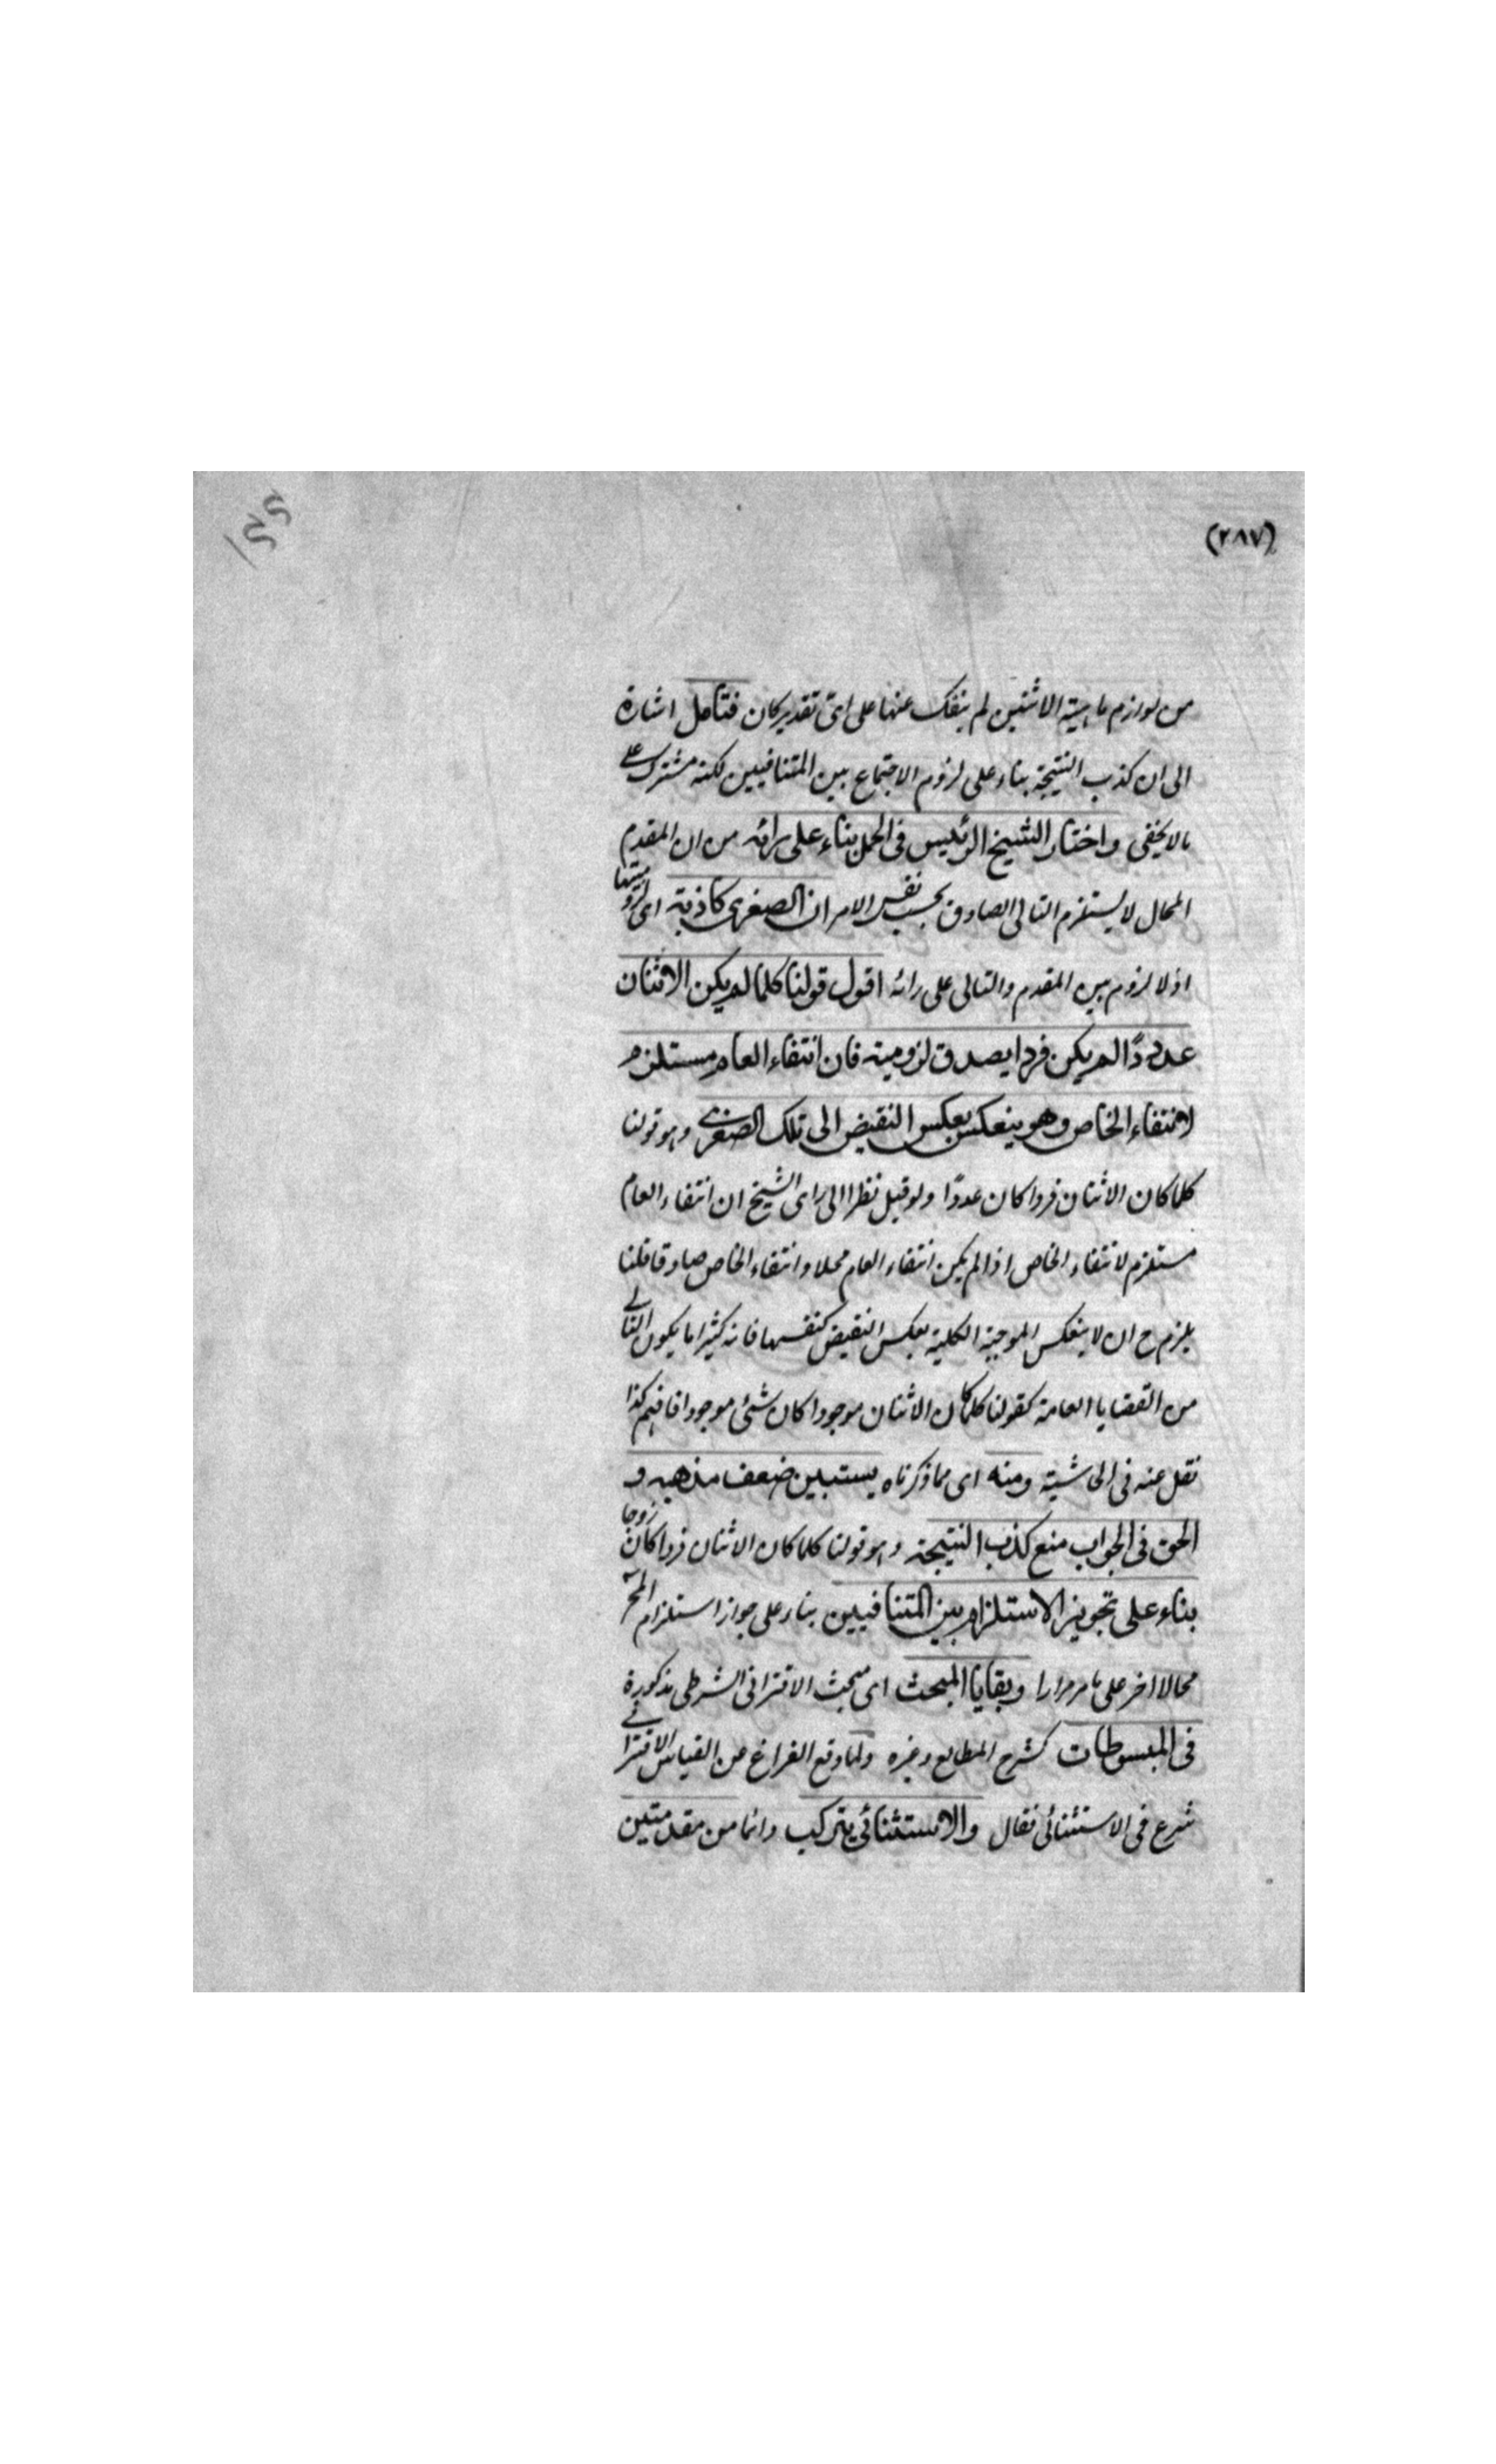 (٢٨٧)
من لوازم ماهية الاثنين لم ينفك عنها على اى تقدير كان فتأمل اشارة
الى ان كذب النتيجة بناء على لزوم الاجتماع بين المتنافيين لكنه مشترك
لا يخفى واختار الشيخ الرئيس فى الحل بناء على رائه من ان المقدم
المحال لا يستلزم التالى الصادق بحسب نفس الامر ان الصغرى كاذبة اى لزوميتها
اذ لا لزوم بين المقدم والتالى على رائه اقول قولنا كلما لم يكن الاثنان
عددًا لم يكن فردا يصدق لزومية فان انتفاء العام مستلزم
لانتفاء الخاص وهو ينعكس بعكس النقيض الى تلك الصغرى وهو قولنا
كلما كان الاثنان فردا كان عددًا ولو قيل نظرا الى راى الشيخ ان انتفاء العام
مستلزم لانتفاء الخاص اذا لم يكن انتفاء العام محالا وانتفاء الخاص صادقا قلنا
يلزم ح ان لا ينعكس الموجبة الكلية بعكس النقيض كنفسها فانه كثيرا ما يكون التالى
من القضايا العامة كقولنا كلما كان الاثنان موجودا كان شئ موجودا فافهم كذا
نقل عنه فى الحاشية ومنه اى مما ذكرناه يستبين ضعف مذهبه و
الحق فى الجواب منع كذب النتيجة وهو قولنا كلما كان الاثنان فردا كان زوجا
بناء على تجويز الاستلزام بين المتنافيين بناء على جواز استلزام المح
محالا اخر على ما مر مرارا وبقايا المبحث اى مبحث الاقترانى الشرطى مذكورة
فى المبسوطات كشرح المطالع وغيره ولما وقع الفراغ عن القياس الاقترانى
شرع فى الاستثنائى فقال والاستثنائى يتركب دائما من مقدمتين